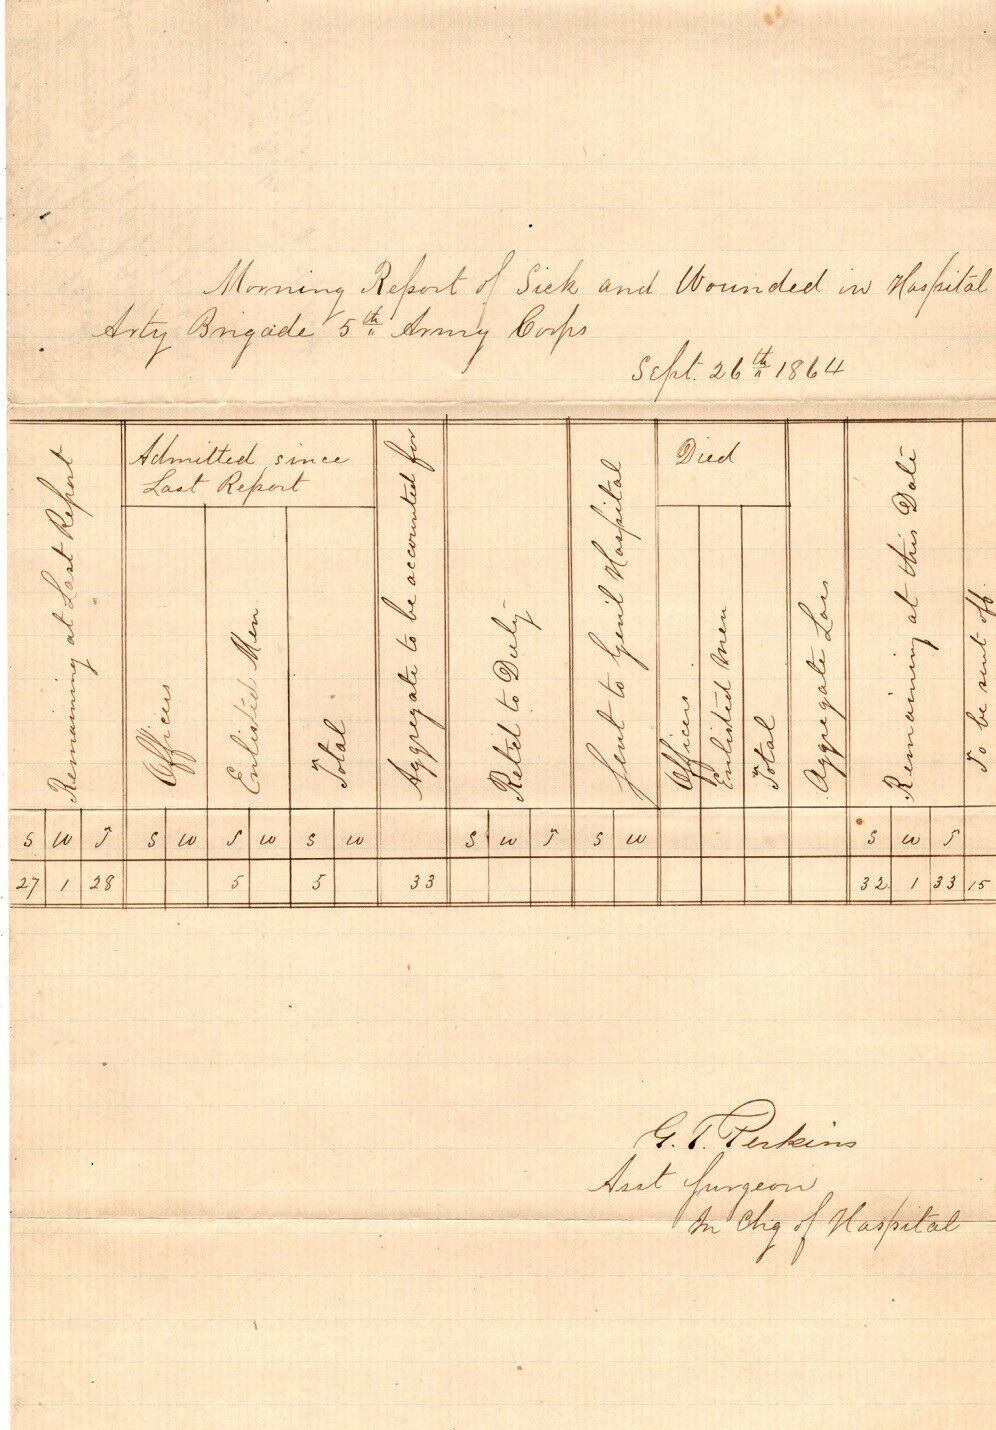 Morning Report of Sick and Wounded in Hospital
Arty Brigade 5th Army Corps
Sept. 26th 1864
Remaining at Last Report
Admitted since
Last Report
Officers
Enlisted Men
Total
Aggregate to be accounted for
Retd to Duty
Sent to Genl Hospital
Died
Officers
Enlisted Men
Total
Aggregate Loss
Remaining at this Date
To be sent off
S W T S W S W S W S W T S W S W T
27 1 28 5 5 33 32 1 33 15
G. T. Perkins
Asst Surgeon
In Chg of Hospital